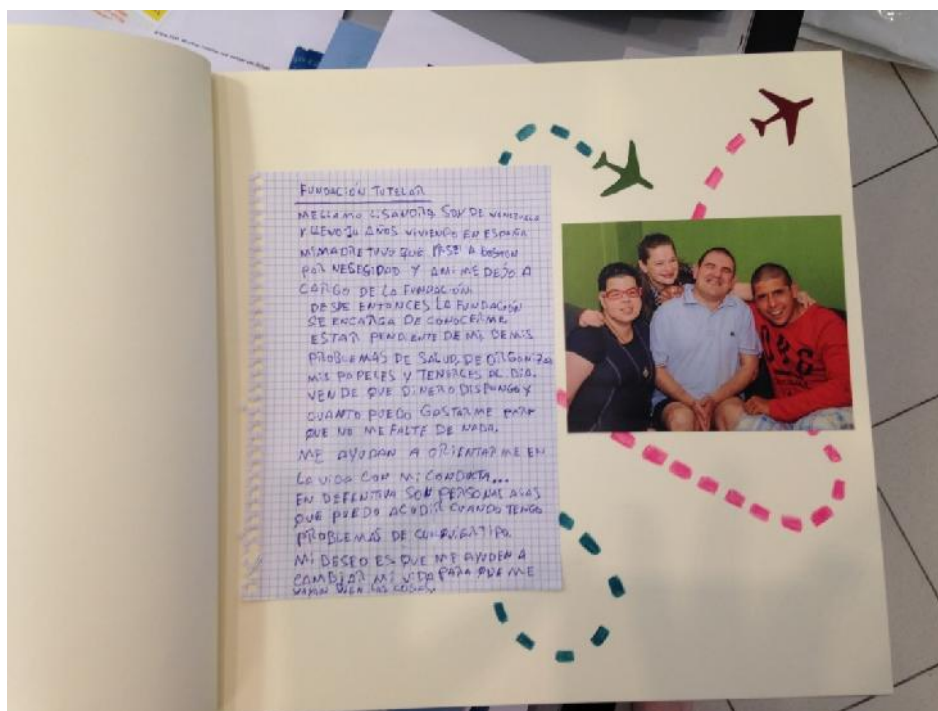 FUNDACIÓN TUTELAR
ME LLAMO LISANDRO SOY DE VENEZUELA
Y LLEVO 14 AÑOS VIVIENDO EN ESPAÑA
MI MADRE TUVO QUE A BOSTON
POR NESECIDAD Y AMI ME DEJO A
CARGO DE LA FUNDACIÓN.
DESDE ENTONCES LA FUNDACIÓN
SE ENCARGA DE CONOCERME
ESTAR PENDIENTE DE MI, DE MIS
PROBLEMAS DE SALUD, DE ORGANIZAR
MIS PAPELES Y TENERLES AL DIA.
VEN DE QUE DINERO DISPONGO Y
CUANTO PUEDO GASTARME PARA
QUE NO ME FALTE DE NADA.
ME AYUDAN A ORIENTARME EN
LA VIDA CON MI CONDUCTA...
EN DEFENITIVA SON PERSONAS ALAS
QUE PUEDO ACUDIR CUANDO TENGO
PROBLEMAS DE CUALQUIER TIPO.
MI DESEO ES QUE ME AYUDEN A
CAMBIAR MI VIDA PARA QUE ME
VAYAN BIEN LAS COSAS.